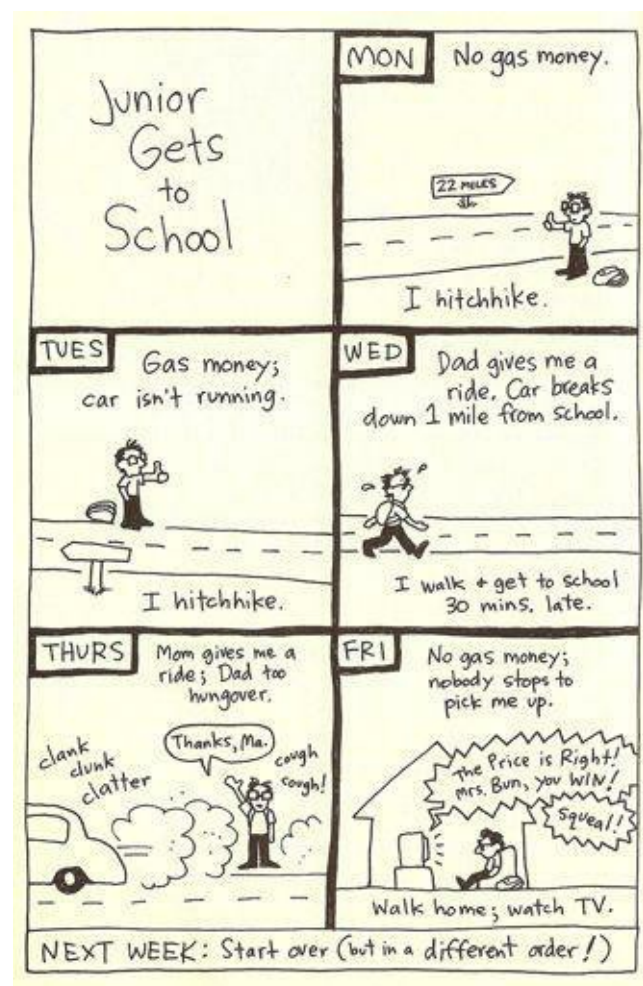 Junior
Gets
to
School
MON
No gas money.
22 MILES
I hitchhike.
TUES
Gas money;
car isn't running.
I hitchhike.
WED
Dad gives me a
ride. Car breaks
down 1 mile from school.
I walk + get to school
30 mins. late.
THURS
Mom gives me a
ride; Dad too
hungover.
clank
clunk
clatter
Thanks, Ma.
cough
cough!
FRI
No gas money;
nobody stops to
pick me up.
The Price is Right!
Mrs. Bun, you WIN!
Squeal!
Walk home; watch TV.
NEXT WEEK: Start over (but in a different order!)